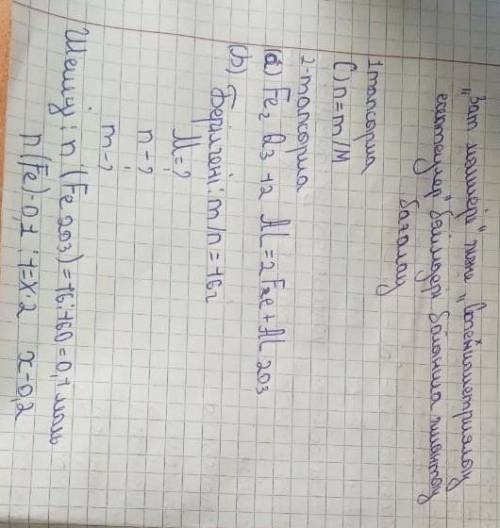 "Зат мөлшері" және "Стехиометриялық
есептеулер" бөлімдері бойынша жиынтық
бағалау
1 тапсырма
C) n=m/M
2-тапсырма
(a) Fe2 O3 +2 Al = 2Fe + Al 2O3
(b) Берілгені: m/n = 16г
M=?
n-?
m-?
Шешуі: n (Fe 2O3) = 16:160 = 0,1 моль
n(Fe)-0,1 : 1=x:2 x-0,2